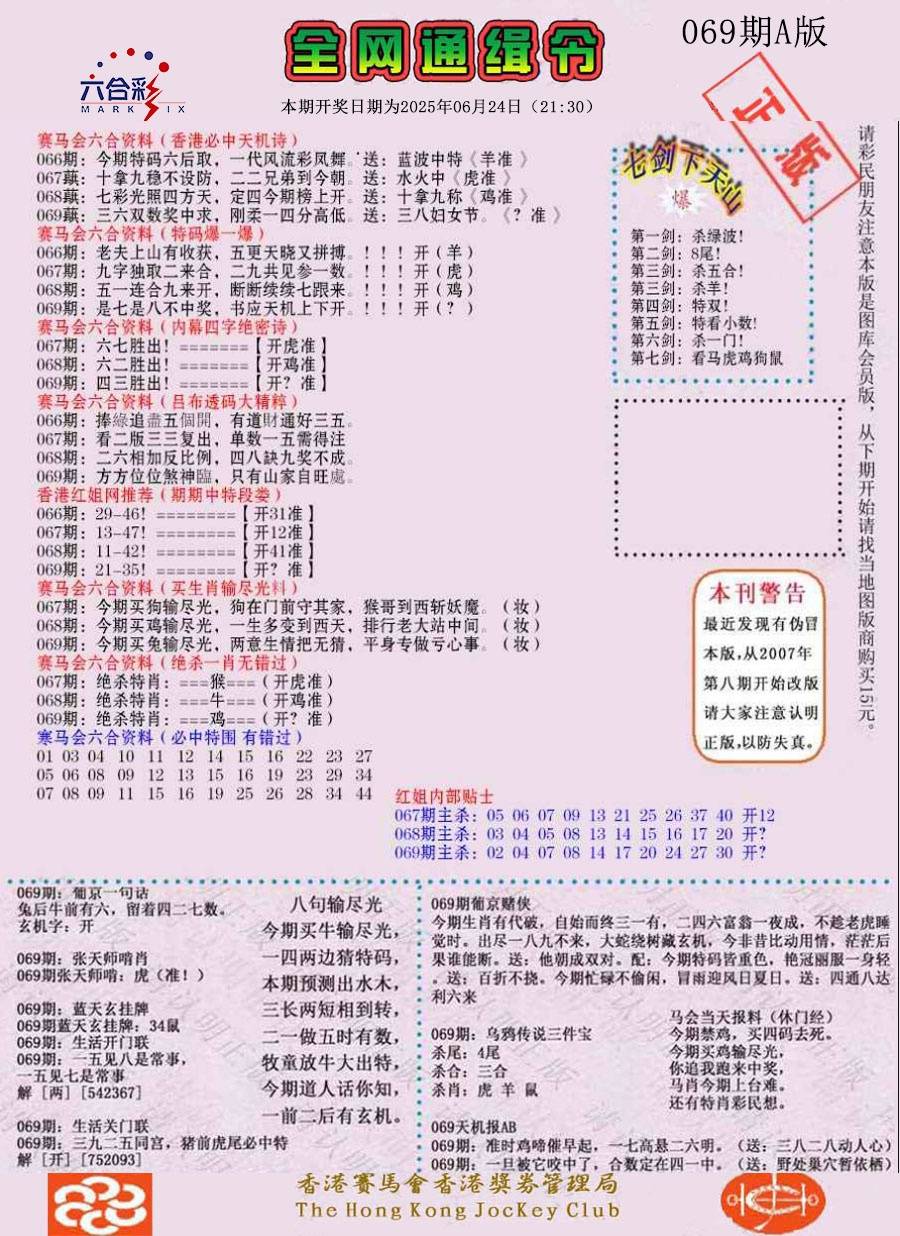 069期A版
全网通缉令
六合彩
MARK SIX
本期开奖日期为2025年06月24日（21:30）
正版
赛马会六合资料（香港必中天机诗）
066期：今期特码六后取，一代风流彩凤舞。送：蓝波中特《羊准 》
067蘤：十拿九稳不设防，二二兄弟到今朝。送：水火中《虎准 》
068蘤：七彩光照四方天，定四今期榜上开。送：十拿九称《鸡准 》
069蘤：三六双数奖中求，刚柔一四分高低。送：三八妇女节。《？准 》
赛马会六合资料（特码爆一爆）
066期：老夫上山有收获，五更天晓又拼搏。！！！开（羊）
067期：九字独取二来合，二九共见参一数。！！！开（虎）
068期：五一连合九来开，断断续续七跟来。！！！开（鸡）
069期：是七是八不中奖，书应天机上下开。！！！开（？）
赛马会六合资料（内幕四字绝密诗）
067期：六七胜出！=======【开虎准】
068期：六二胜出！=======【开鸡准】
069期：四三胜出！=======【开？准】
赛马会六合资料（吕布透码大精粹）
066期：捧綠追盡五個開，有道財通好三五。
067期：看二版三三复出，单数一五需得注
068期：二六相加反比例，四八缺九奖不成。
069期：方方位位煞神臨，只有山家自旺處。
香港红姐网推荐（期期中特段娄）
066期：29-46！========【开31准】
067期：13-47！========【开12准】
068期：11-42！========【开41准】
069期：21-35！========【开？准】
赛马会六合资料（买生肖输尽光料）
067期：今期买狗输尽光，狗在门前守其家，猴哥到西斩妖魔。（妆）
068期：今期买鸡输尽光，一生多变到西天，排行老大站中间。（妆）
069期：今期买兔输尽光，两意生情把无猜，平身专做亏心事。（妆）
赛马会六合资料（绝杀一肖无错过）
067期：绝杀特肖：===猴===（开虎准）
068期：绝杀特肖：===牛===（开鸡准）
069期：绝杀特肖：===鸡===（开？准）
寒马会六合资料（必中特围 有错过）
01 03 04 10 11 12 14 15 16 22 23 27
05 06 08 09 12 13 15 16 19 23 29 34
07 08 09 11 15 16 19 25 26 28 34 44
红姐内部贴士
067期主杀：05 06 07 09 13 21 25 26 37 40 开12
068期主杀：03 04 05 08 13 14 15 16 17 20 开?
069期主杀：02 04 07 08 14 17 20 24 27 30 开?
七剑下天山
爆
第一剑：杀绿波！
第二剑：8尾！
第三剑：杀五合！
第三剑：杀羊！
第四剑：特双！
第五剑：特看小数！
第六剑：杀一门！
第七剑：看马虎鸡狗鼠
请彩民朋友注意本版是图库会员版，从下期开始请找当地图版商购买15元。
本刊警告
最近发现有伪冒
本版,从2007年
第八期开始改版
请大家注意认明
正版,以防失真。
069期：葡京一句话
兔后牛前有六，留着四二七数。
玄机字：开
069期：张天师啃肖
069期张天师啃：虎（准！）
069期：蓝天玄挂牌
069期蓝天玄挂牌：34鼠
069期：生活开门联
069期：一五见八是常事，
一五见七是常事
解［两］[542367]
069期：生活关门联
069期：三九二五同宫，猪前虎尾必中特
解［开］[752093]
八句输尽光
今期买牛输尽光，
一四两边猜特码，
本期预测出水木，
三长两短相到转，
二一做五时有数，
牧童放牛大出特，
今期道人话你知，
一前二后有玄机。
069期葡京赌侠
今期生肖有代破，自始而终三一有，二四六富翁一夜成，不趁老虎睡
觉时。出尽一八九不来，大蛇绕树藏玄机，今非昔比动用情，茫茫后
果谁能断。送：他朝成双对。配：今期特码皆重色，艳冠丽服一身轻
。送：百折不挠。今期忙碌不偷闲，冒雨迎风日夏日。送：四通八达
利六来
069期：乌鸦传说三件宝
杀尾：4尾
杀合：三合
杀肖：虎 羊 鼠
马会当天报料（休门经）
今期禁鸡，买四码去死。
今期买鸡输尽光，
你追我跑来中奖，
马肖今期上台难。
还有特肖彩民想。
069天机报AB
069期：准时鸡啼催早起，一七高悬二六明。（送：三八二八动人心）
069期：一旦被它咬中了，合数定在四一中。（送：野处巢穴暂依栖）
香港賽馬會香港獎券管理局
The Hong Kong JocKey Club